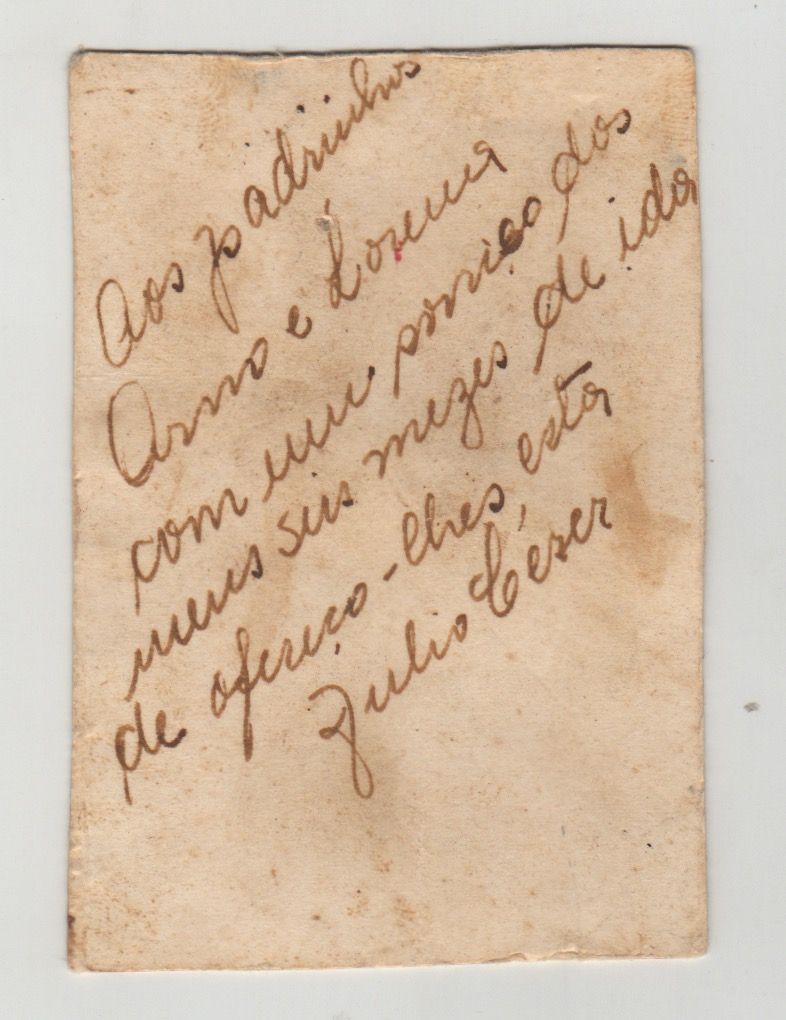 Aos padrinhos
Arno e Lorena
com um sorriço dos
meus seis mezes de ida
de ofereço-lhes, esta
Julio Cézer